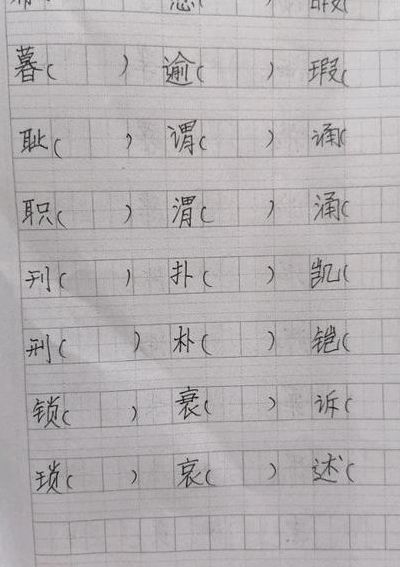 暮( ) 逾( ) 瑕(
耻( ) 谓( ) 诵(
职( ) 渭( ) 涌(
刊( ) 扑( ) 凯(
刑( ) 朴( ) 铠(
锁( ) 衰( ) 诉(
琐( ) 哀( ) 述(